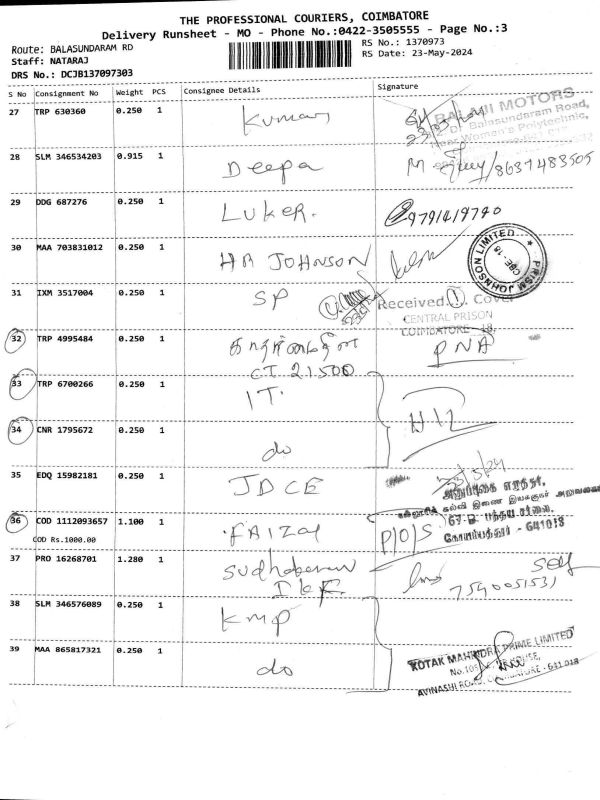 THE PROFESSIONAL COURIERS, COIMBATORE
Delivery Runsheet - MO - Phone No.:0422-3505555 - Page No.:3
Route: BALASUNDARAM RD
RS No.: 1370973
Staff: NATARAJ
RS Date: 23-May-2024
DRS No.: DCJB137097303
S No Consignment No Weight PCS Consignee Details Signature
27 TRP 630360 0.250 1 Kumar
BALAJI MOTORS
Balasundaram Road,
Near Women's Polytechnic,
28 SLM 346534203 0.915 1 Deepa
/8637483505
29 DDG 687276 0.250 1 LUKER.
9791419740
30 MAA 703831012 0.250 1 HR JOHNSON
PRISM JOHNSON LIMITED
CBE-18
31 IXM 3517004 0.250 1 SP
Received Cover
CENTRAL PRISON
COIMBATORE - 18.
32 TRP 4995484 0.250 1
CT 21500
PNA
33 TRP 6700266 0.250 1 IT.
H12
34 CNR 1795672 0.250 1 do
35 EDQ 15982181 0.250 1 JDCE
23/5/24
கல்வி இணை இயக்குநர் அலுவலகம்
67-B, பந்தய சாலை,
கோயம்புத்தூர் - 641018
36 COD 1112093657 1.100 1 FAIZAL
P/O/S
COD Rs.1000.00
37 PRO 16268701 1.280 1 Sudhakaran
self
7590051531
38 SLM 346576089 0.250 1 KMP
39 MAA 865817321 0.250 1 do
KOTAK MAHINDRA PRIME LIMITED
AVINASHI ROAD, COIMBATORE - 641 018